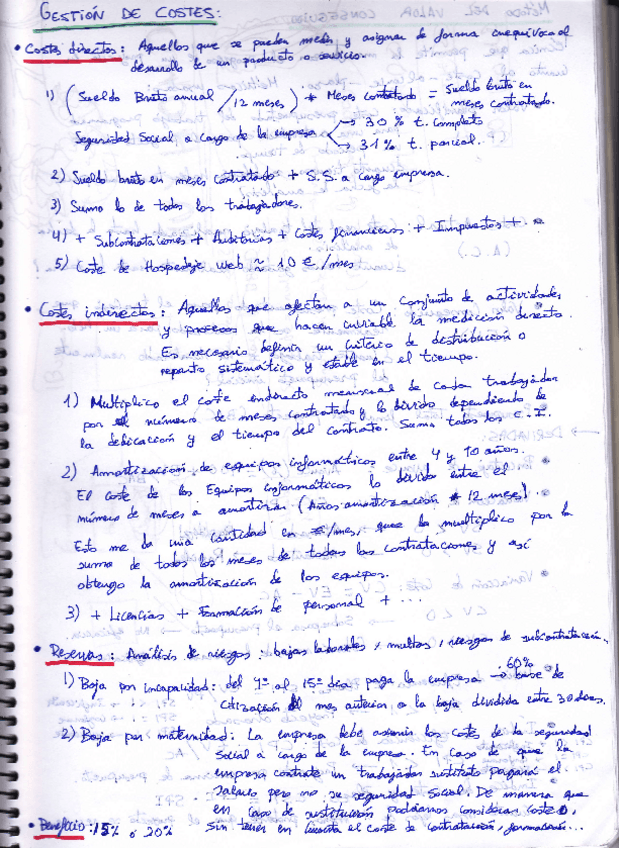 GESTIÓN DE COSTES:
• Costes directos: Aquellos que se pueden medir y asignar de forma inequívoca al
desarrollo de un producto o servicio.
1) (Sueldo Bruto anual / 12 meses) * Meses contratado = Sueldo bruto en
meses contratado.
Seguridad Social a cargo de la empresa → 30 % t. completo
→ 31 % t. parcial.
2) Sueldo bruto en meses contratado + S.S. a cargo empresa.
3) Sumo lo de todos los trabajadores.
4) + Subcontrataciones + Auditorias + Costes financieros + Impuestos + ...
5) Coste de Hospedaje web ≈ 10 €/mes
• Costes indirectos: Aquellos que afectan a un conjunto de actividades
y procesos que hacen inviable la medición directa.
Es necesario definir un criterio de distribución o
reparto sistemático y estable en el tiempo.
1) Multiplico el coste indirecto mensual de cada trabajador
por el número de meses contratado y lo divido dependiendo de
la dedicación y el tiempo del contrato. Sumo todos los C.I.
2) Amortización de equipos informáticos entre 4 y 10 años.
El coste de los Equipos informáticos lo divido entre el
número de meses a amortizar (Años amortización * 12 meses).
Esto me da una cantidad en €/mes, que la multiplico por la
suma de todos los meses de todas las contrataciones y así
obtengo la amortización de los equipos.
3) + Licencias + Formación de personal + ...
• Reservas: Análisis de riesgos: bajas laborales, multas, riesgos de subcontratación.
1) Baja por incapacidad: del 4º al 15º día paga la empresa → 60% base de
cotización del mes anterior a la baja dividida entre 30 días.
2) Baja por maternidad: La empresa debe asumir los costes de la seguridad
social a cargo de la empresa. En caso de que la
empresa contrate un trabajador sustituto pagará el
salario pero no su seguridad social. De manera que
en caso de sustitución podríamos considerar coste 0,
sin tener en cuenta el coste de contratación, formación...
• Beneficio: 15% o 20%